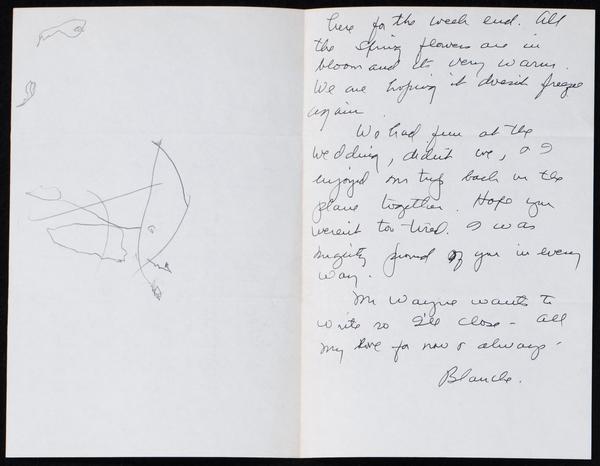 here for the week end. All
the Spring flowers are in
bloom and its very warm.
We are hoping it doesn't freeze
again.
We had fun at the
wedding, didn't we, & I
enjoyed our trip back on the
plane together. Hope you
weren't too tired. I was
mighty proud of you in every
way.
Mr Wayne wants to
write so I'll close - All
my love for now & always -
Blanche.